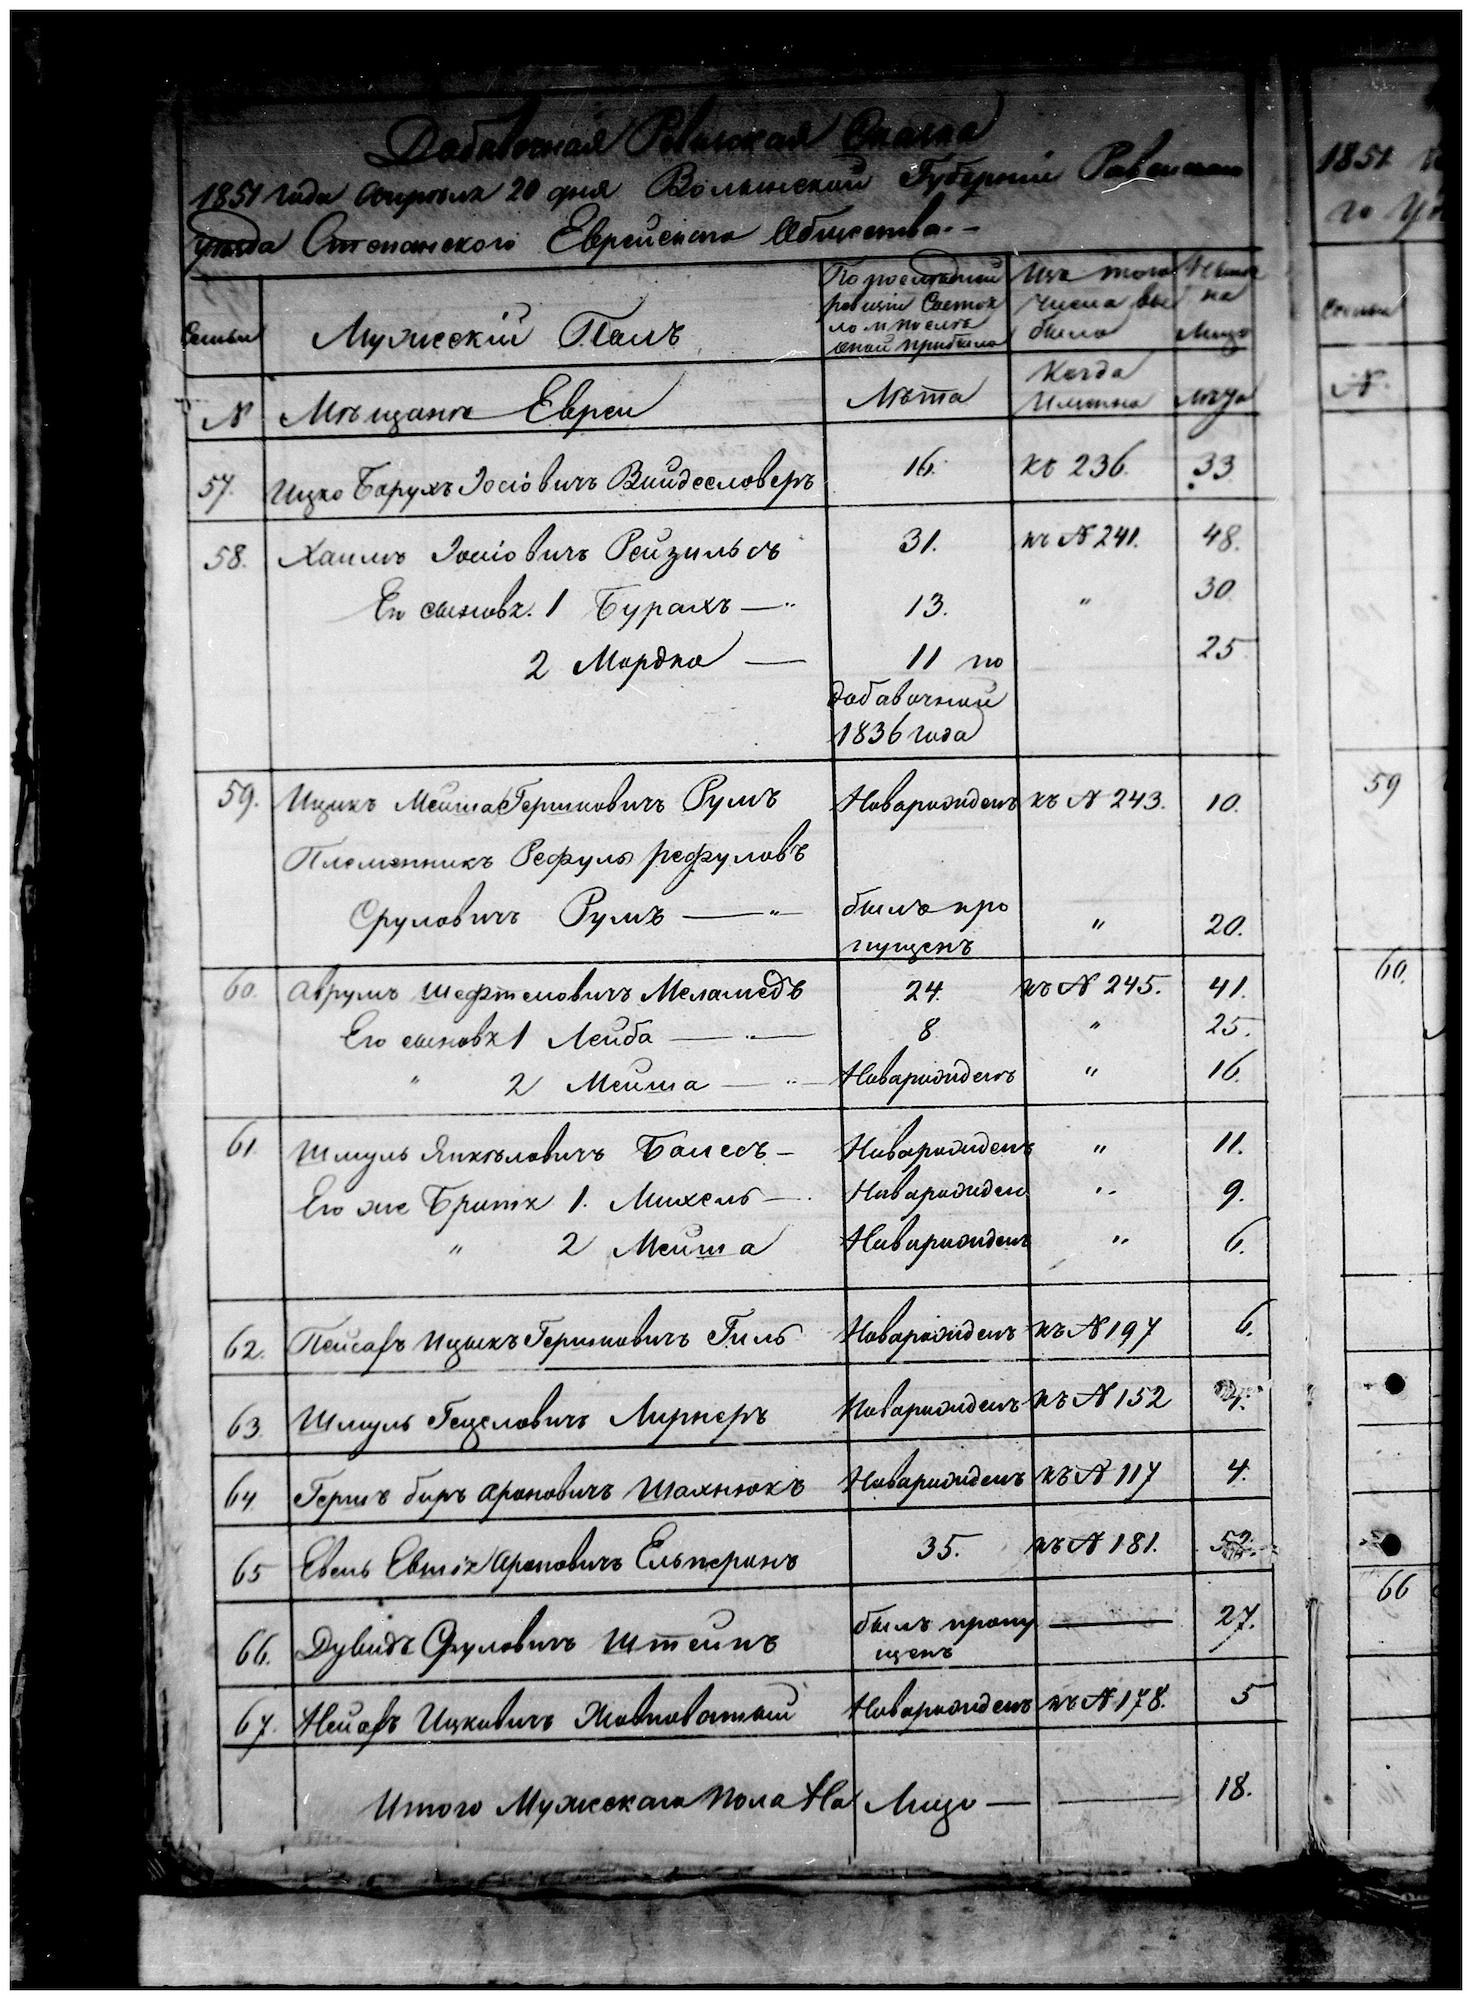 Добавочная Ревизская Сказка
1851 года Апреля 20 дня Волынской Губернии Ровенскаго
уезда Степанского Еврейскаго Общества.-
Семьи
Мужескій Полъ
По последней ревизіи Состояло и после оной прибыло
Изъ того числа выбыло
Ныне на лицо
№ Мѣщане Евреи Лѣта Когда Именно Лѣта
57. Ицко Борухъ Іосіовичъ Вайдесловеръ 16. къ 236. 33
58. Хаимъ Іосіовичъ Рейзильсъ 31. къ № 241. 48.
Его сыновя. 1 Бурахъ — " 13. " 30
2 Мордко — 11 по 25
добавочной
1836 года
59. Ицикъ Мейша Гершковичъ Румъ Новорожденъ къ № 243. 10.
Племенникъ Рефулъ рефуловъ
Срулович Румъ — " былъ про " 20.
пущенъ
60. Аврумъ Шефтелович Меламедъ 24. къ № 245. 41.
Его сыновя 1 Лейба — " — 8 " 25.
" 2 Мейша — " — Новорожденъ " 16.
61. Шмуль Янкѣловичъ Баислъ — Новорожденъ " 11.
Его же Братя 1. Михель — Новорожден " 9.
" 2 Мейша Новорожденъ " 6.
62. Пейсафъ Ицыкъ Гершковичъ Гиль Новорожденъ къ № 197 6.
63 Шмуль Гецеловичъ Лирнеръ Новорожденъ къ № 152
64 Гершъ беръ Ароновичъ Шахнюкъ Новорожденъ къ № 117 4.
65 Евель Ароновичъ Ельперинъ 35. къ № 181. 52.
66. Дувидъ Сруловичъ Штейнъ былъ пропу — 27.
щенъ
67. Ицковичъ Жовноватый Новорожденъ къ № 178. 5
Итого Мужескаго пола На Лицо — — 18.
1851
го
Семьи
№.
59
60.
66